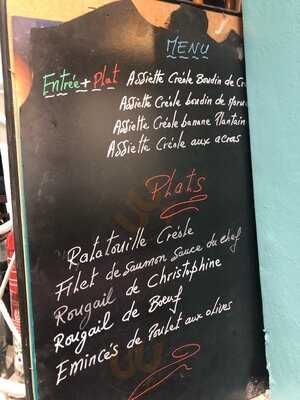 MENU
Entrée + Plat Assiette Créole Boudin de
Assiette Créole boudin de
Assiette Créole banane Plantain
Assiette Créole aux acras
Plats
Ratatouille Créole
Filet de Saumon Sauce du chef
Rougail de Christophine
Rougail de Boeuf
Emincés de Poulet aux olives